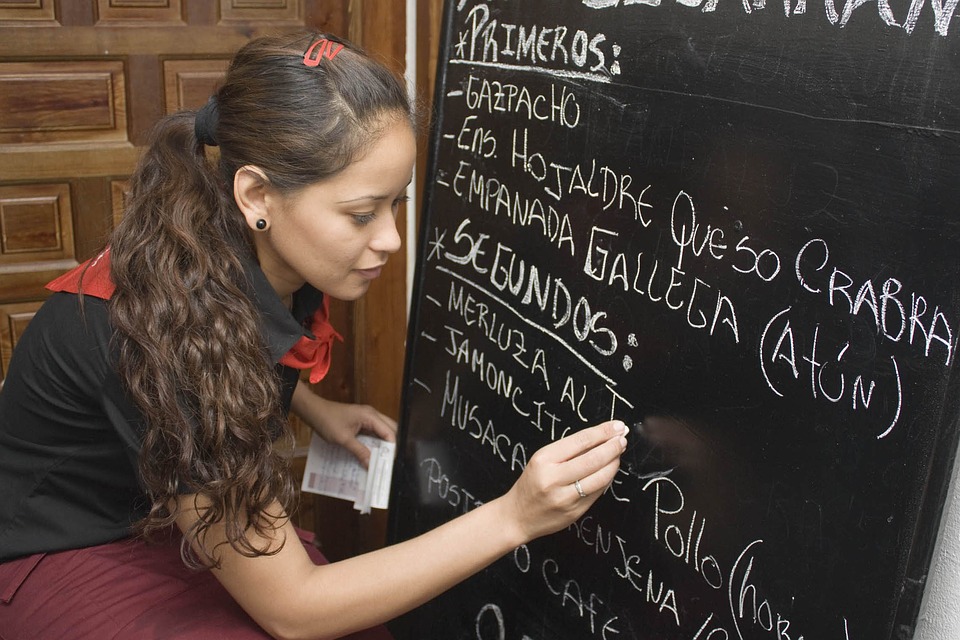 *PRIMEROS:
-GAZPACHO
-Ens. HOJALDRE QUESO CRABRA
-EMPANADA GALLEGA (Atún)
*SEGUNDOS:
-MERLUZA AL T
-JAMONCIT DE Pollo (hor
-MUSACA RENJENA
POST O CAFE